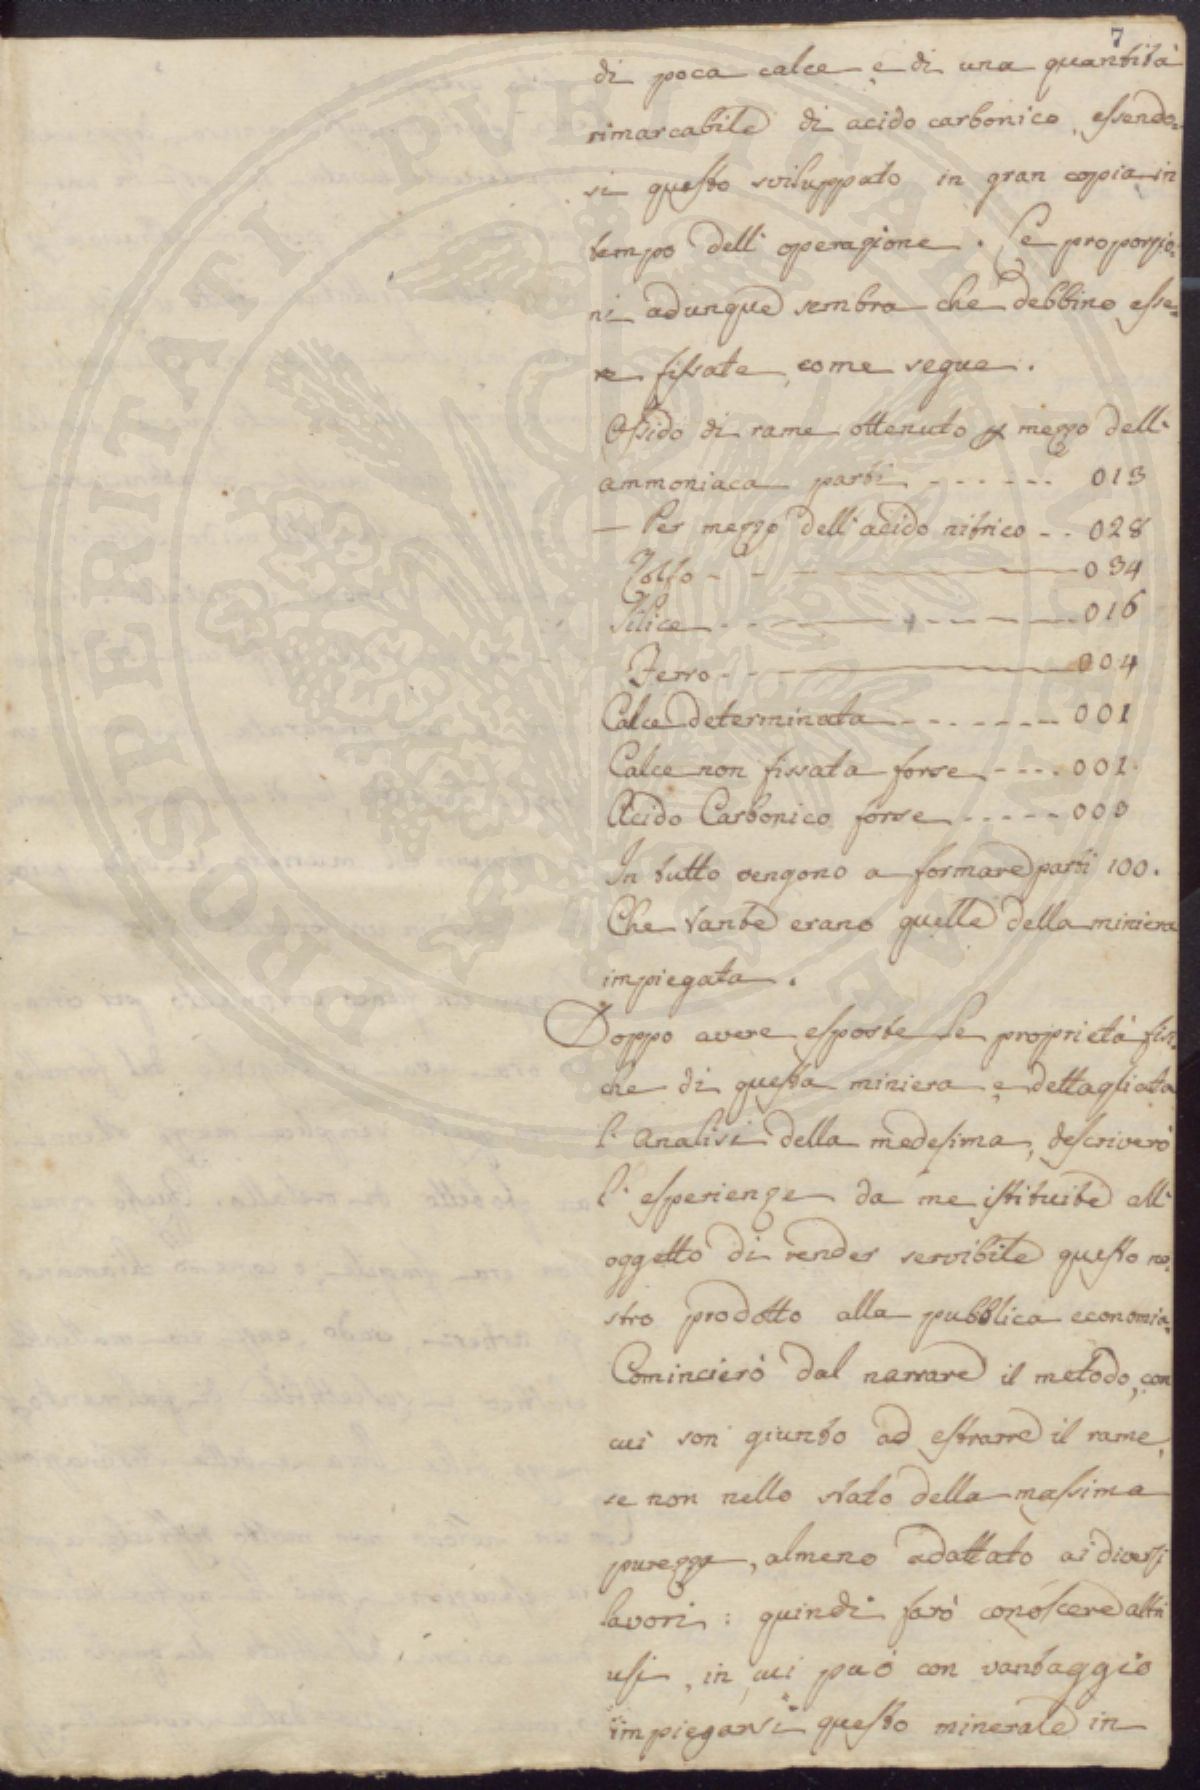 7
di poca calce e di una quantità
rimarcabile di acido carbonico, essendo=
si questo sviluppato in gran copia in
tempo dell'operazione. Le proporzio=
ni adunque sembra che debbino esse=
re fissate, come segue.
Ossido di rame ottenuto p mezzo dell'
ammoniaca parti - - - - - - 013
— Per mezzo dell'acido nitrico - - 028
Zolfo - - - 034
Silice - - - 016
Ferro - - - 004
Calce determinata - - - - - - 001
Calce non fissata forse - - - - 001
Acido Carbonico forse - - - - - 003
In tutto vengono a formare parti 100.
Che tante erano quelle della miniera
impiegata.
Doppo avere esposte le proprietà fisi=
che di questa miniera e dettagliata
l'analisi della medesima, descriverò
l'esperienze da me istituite all'
oggetto di render servibile questo no=
stro prodotto alla pubblica economia.
Comincierò dal narrare il metodo, con
cui son giunto ad estrarre il rame,
se non nello stato della massima
purezza, almeno adattato ai diversi
lavori: quindi farò conoscere altri
usi, in cui può con vantaggio
impiegarsi questo minerale in
PROSPERITATI PVBLICAE AVGENDAE